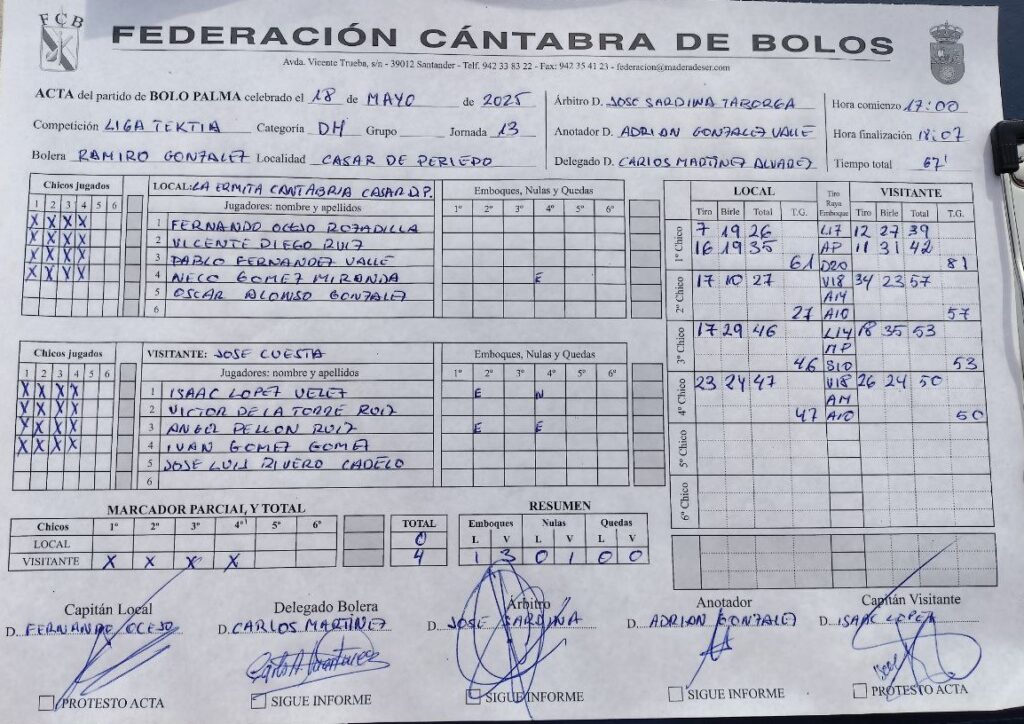 FCB
FEDERACIÓN CÁNTABRA DE BOLOS
Avda. Vicente Trueba, s/n - 39012 Santander - Telf. 942 33 83 22 - Fax: 942 35 41 23 - federacion@maderadeser.com
ACTA del partido de BOLO PALMA celebrado el 18 de MAYO de 2025
Competición LIGA TEKTIA Categoría DH Grupo Jornada 13
Bolera RAMIRO GONZALEZ Localidad CASAR DE PERIEDO
Árbitro D. JOSE SARDINA TABORGA
Anotador D. ADRIAN GONZALEZ VALLE
Delegado D. CARLOS MARTINEZ ALVAREZ
Hora comienzo 17:00
Hora finalización 18:07
Tiempo total 67'
Chicos jugados
1 2 3 4 5 6
X X X X
X X X X
X X X X
X X X X
LOCAL: LA ERMITA CANTABRIA CASAR D.P.
Jugadores: nombre y apellidos
1 FERNANDO OCEJO ROZADILLA
2 VICENTE DIEGO RUIZ
3 PABLO FERNANDEZ VALLE
4 NECO GOMEZ MIRANDA
5 OSCAR ALONSO GONZALEZ
6
Emboques, Nulas y Quedas
1º 2º 3º 4º 5º 6º
E
Chicos jugados
1 2 3 4 5 6
X X X X
X X X X
X X X X
X X X X
VISITANTE: JOSE CUESTA
Jugadores: nombre y apellidos
1 ISAAC LOPEZ VELEZ
2 VICTOR DE LA TORRE RUIZ
3 ANGEL PELLON RUIZ
4 IVAN GOMEZ GOMEZ
5 JOSE LUIS RIVERO CADELO
6
Emboques, Nulas y Quedas
1º 2º 3º 4º 5º 6º
E N
E E
LOCAL Tiro Raya Emboque VISITANTE
Tiro Birle Total T.G. Tiro Birle Total T.G.
1º Chico
7 19 26 L17 12 27 39
16 19 35 AP 11 31 42
61 D20 81
2º Chico
17 10 27 V18 34 23 57
A14
27 A10 57
3º Chico
17 29 46 L14 18 35 53
MP
46 S10 53
4º Chico
23 24 47 V18 26 24 50
AM
47 A10 50
5º Chico
6º Chico
MARCADOR PARCIAL, Y TOTAL
Chicos 1º 2º 3º 4º 5º 6º TOTAL
LOCAL 0
VISITANTE X X X X 4
RESUMEN
Emboques Nulas Quedas
L V L V L V
1 3 0 1 0 0
Capitán Local
D. FERNANDO OCEJO
PROTESTO ACTA
Delegado Bolera
D. CARLOS MARTINEZ
SIGUE INFORME
Árbitro
D. JOSE SARDINA
SIGUE INFORME
Anotador
D. ADRIAN GONZALEZ
SIGUE INFORME
Capitán Visitante
D. ISAAC LOPEZ
PROTESTO ACTA